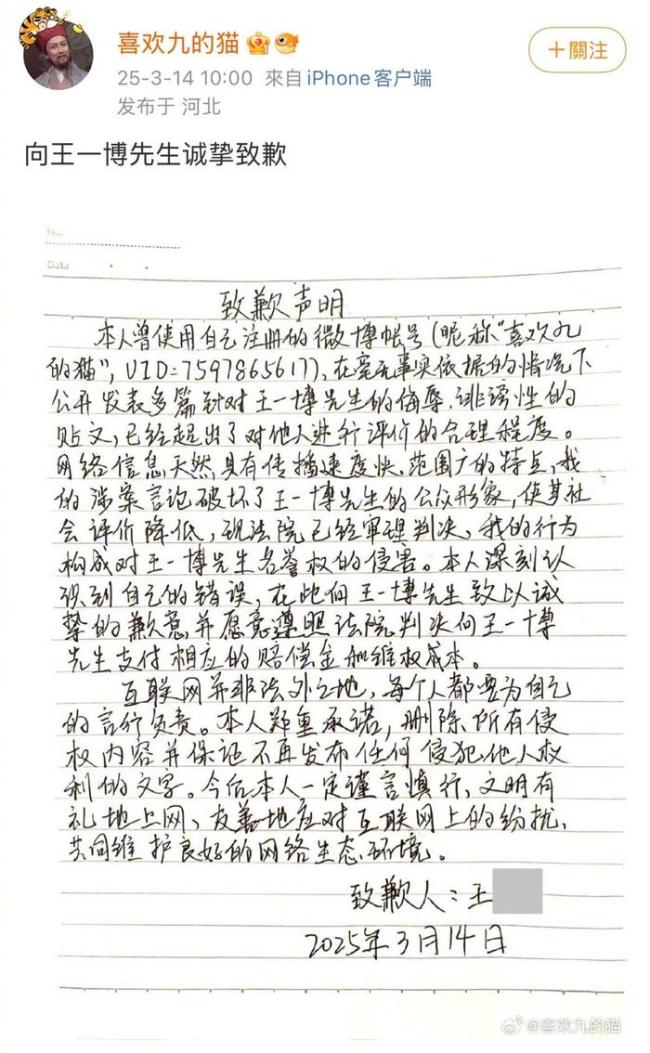 喜欢九的猫
25-3-14 10:00 來自 iPhone客户端
发布于 河北
＋關注
向王一博先生诚挚致歉
No.
Date
致歉声明
本人曾使用自己注册的微博帐号(昵称“喜欢九
的猫”, UID=7597865617), 在毫无事实依据的情况下
公开发表多篇针对王一博先生的侮辱、诽谤性的
贴文,已经超出了对他人进行评价的合理程度。
网络信息天然具有传播速度快、范围广的特点,我
的涉案言论破坏了王一博先生的公众形象,使其社
会评价降低,现法院已经审理判决,我的行为
构成对王一博先生名誉权的侵害。本人深刻认
识到自己的错误,在此向王一博先生致以诚
挚的歉意,并愿意遵照法院判决向王一博
先生支付相应的赔偿金和维权成本。
互联网并非法外之地,每个人都要为自己
的言行负责。本人郑重承诺,删除所有侵
权内容并保证不再发布任何侵犯他人权
利的文字。今后本人一定谨言慎行,文明有
礼地上网、友善地应对互联网上的纷扰,
共同维护良好的网络生态环境。
致歉人:王
2025年3月14日
@喜欢九的猫